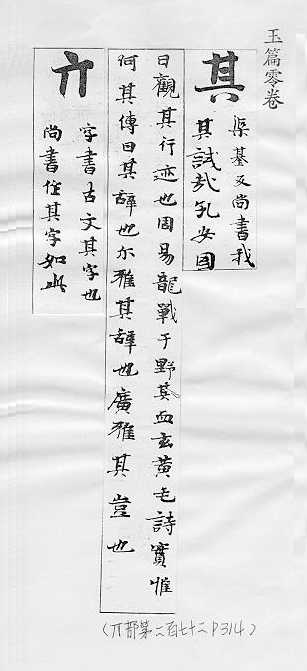 玉篇零卷
其
渠基反尚書我
其試哉孔安國
曰觀其行迹也周易龍戰于野其血玄黃毛詩實惟
何其傳曰其辞也尔雅其辞也廣雅其豈也
亓
字書古文其字也
尚書作其字如此
(丌部第二百七十二P314)